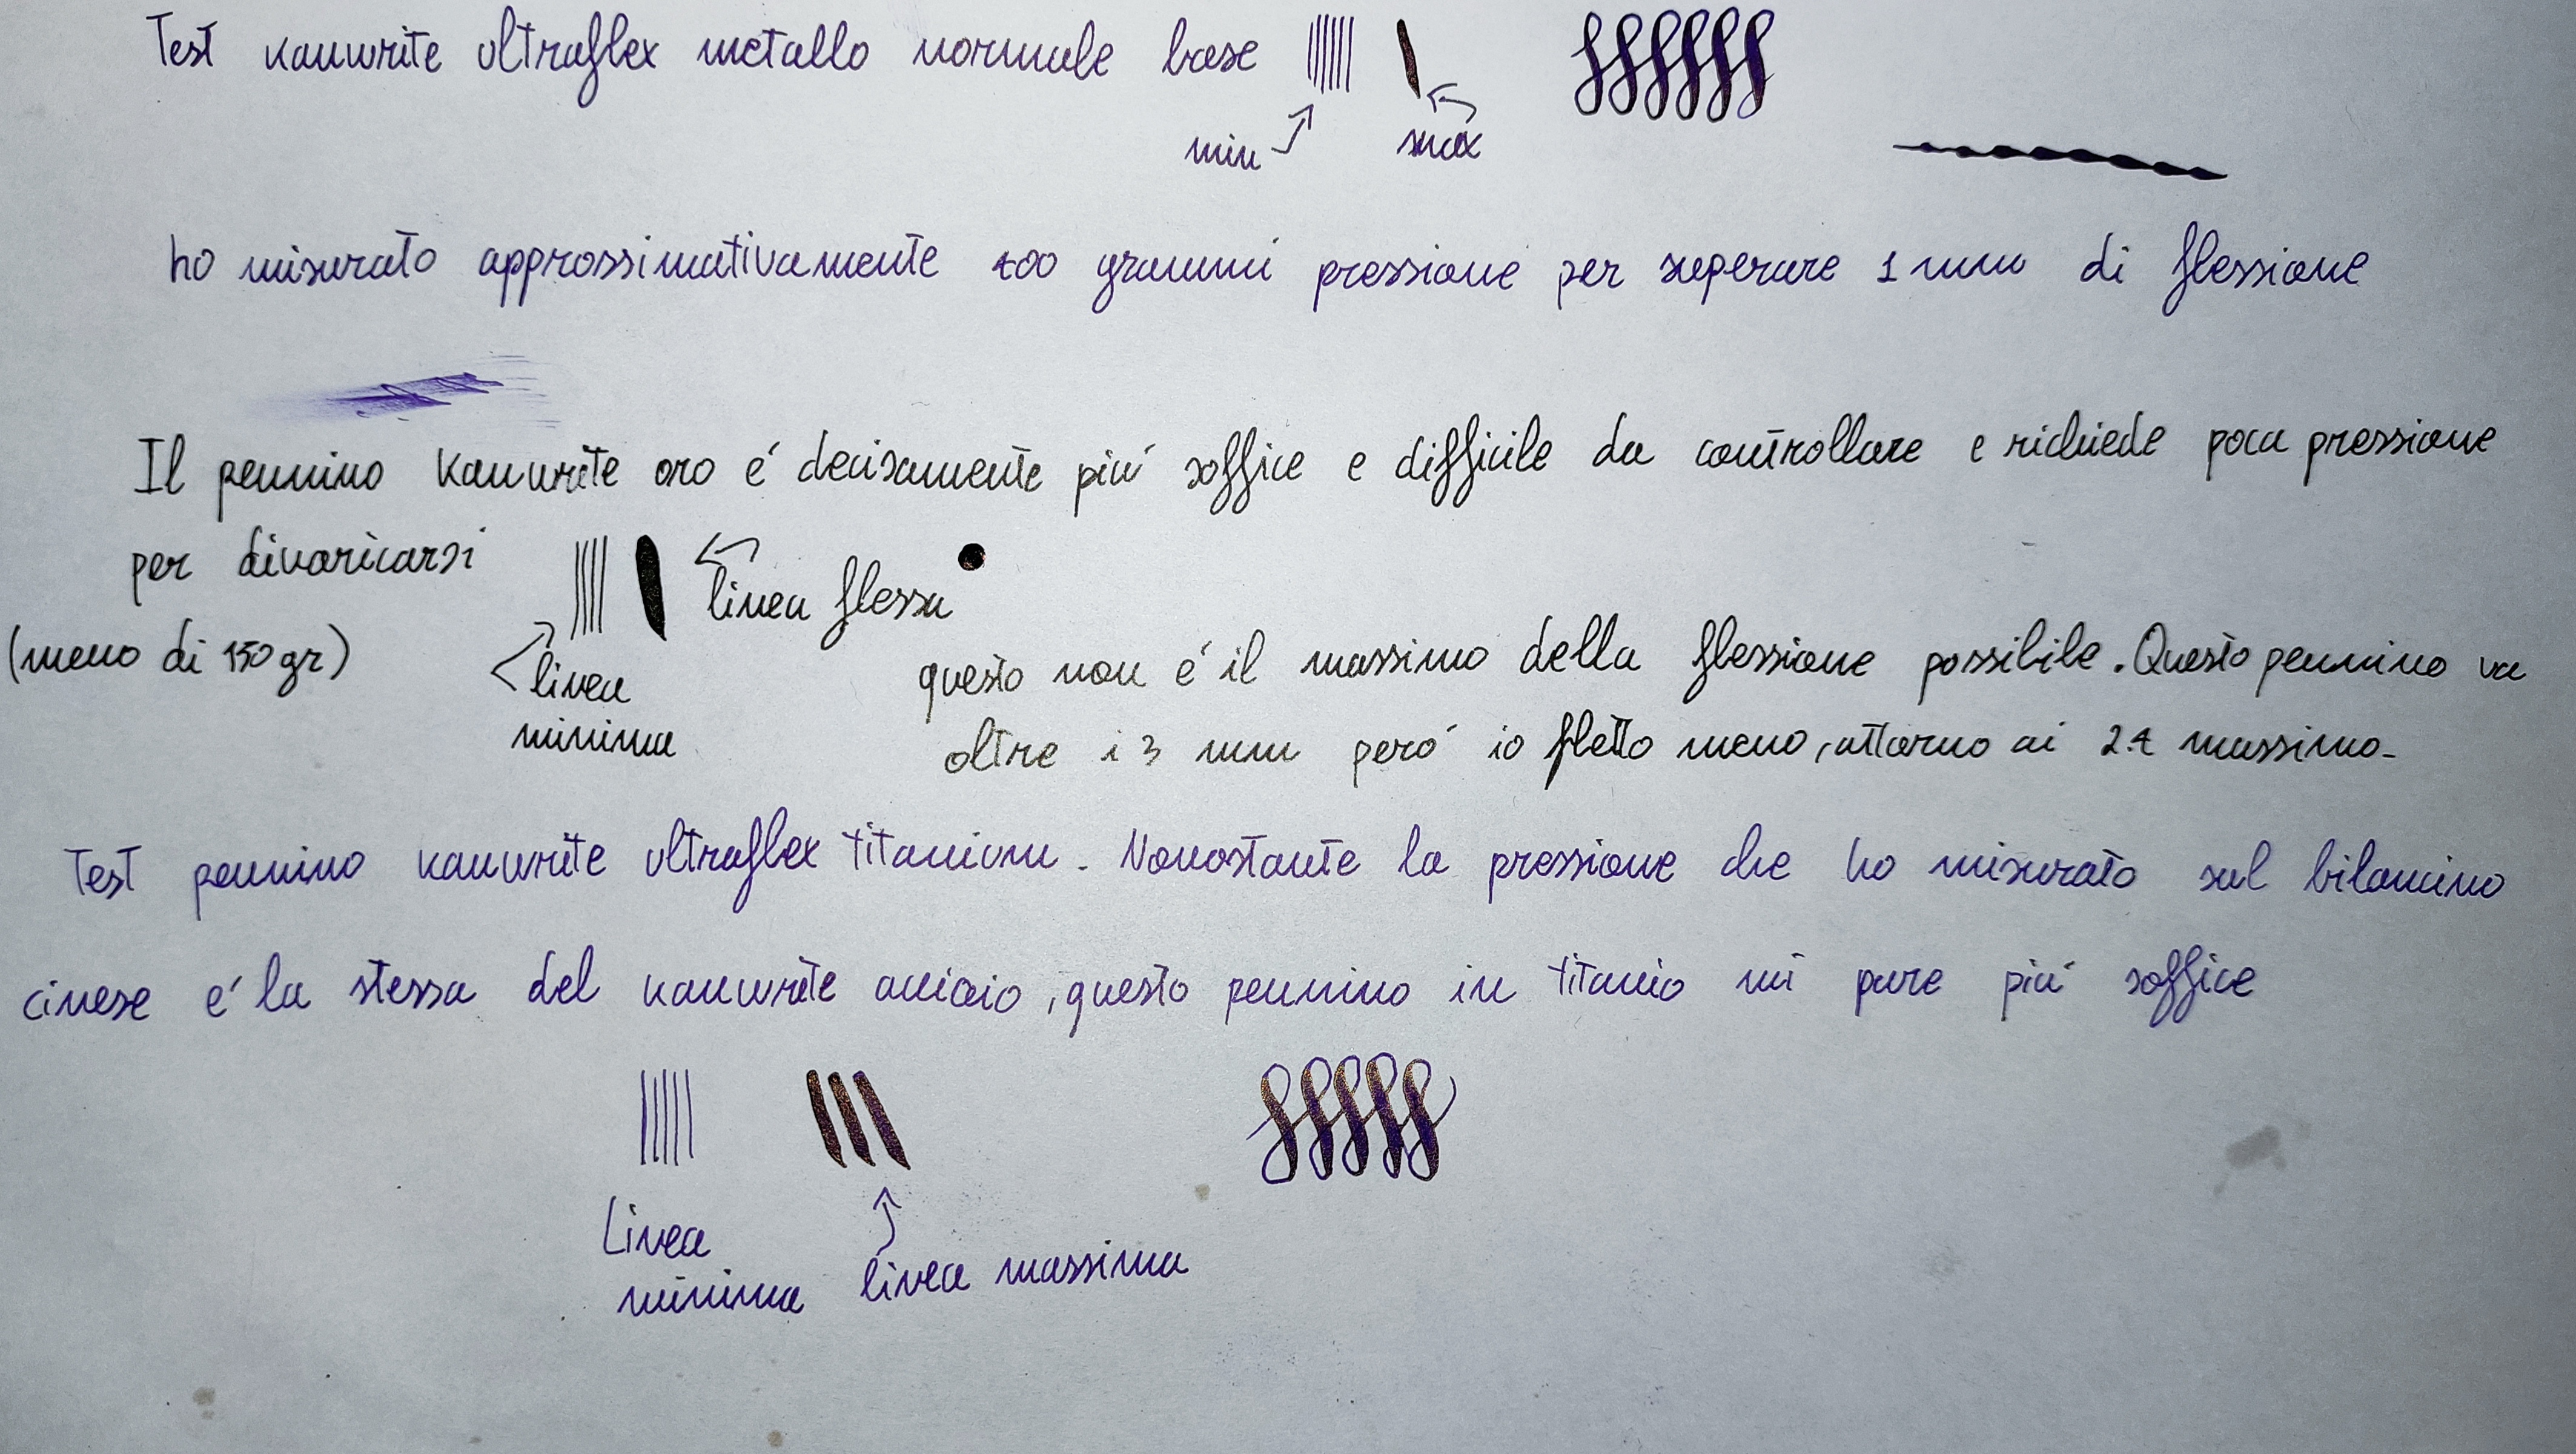 Test kanwrite ultraflex metallo normale base
min max
ho misurato approssimativamente 400 grammi pressione per superare 1 mm di flessione
Il pennino Kanwrite oro é decisamente piú soffice e difficile da controllare e richiede poca pressione
per divaricarsi
linea flessa
(meno di 150 gr)
linea
minima
questo non é il massimo della flessione possibile. Questo pennino va
oltre i 3 mm peró io fletto meno, attorno ai 2 massimo
Test pennino kanwrite ultraflex titanium. Nonostante la pressione che ho misurato sul bilancino
cinese é la stessa del kanwrite acciaio, questo pennino in titanio mi pare piú soffice
Linea
minima
linea massima